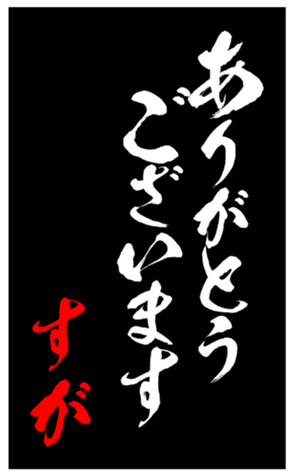 ありがとう
ございます
すが